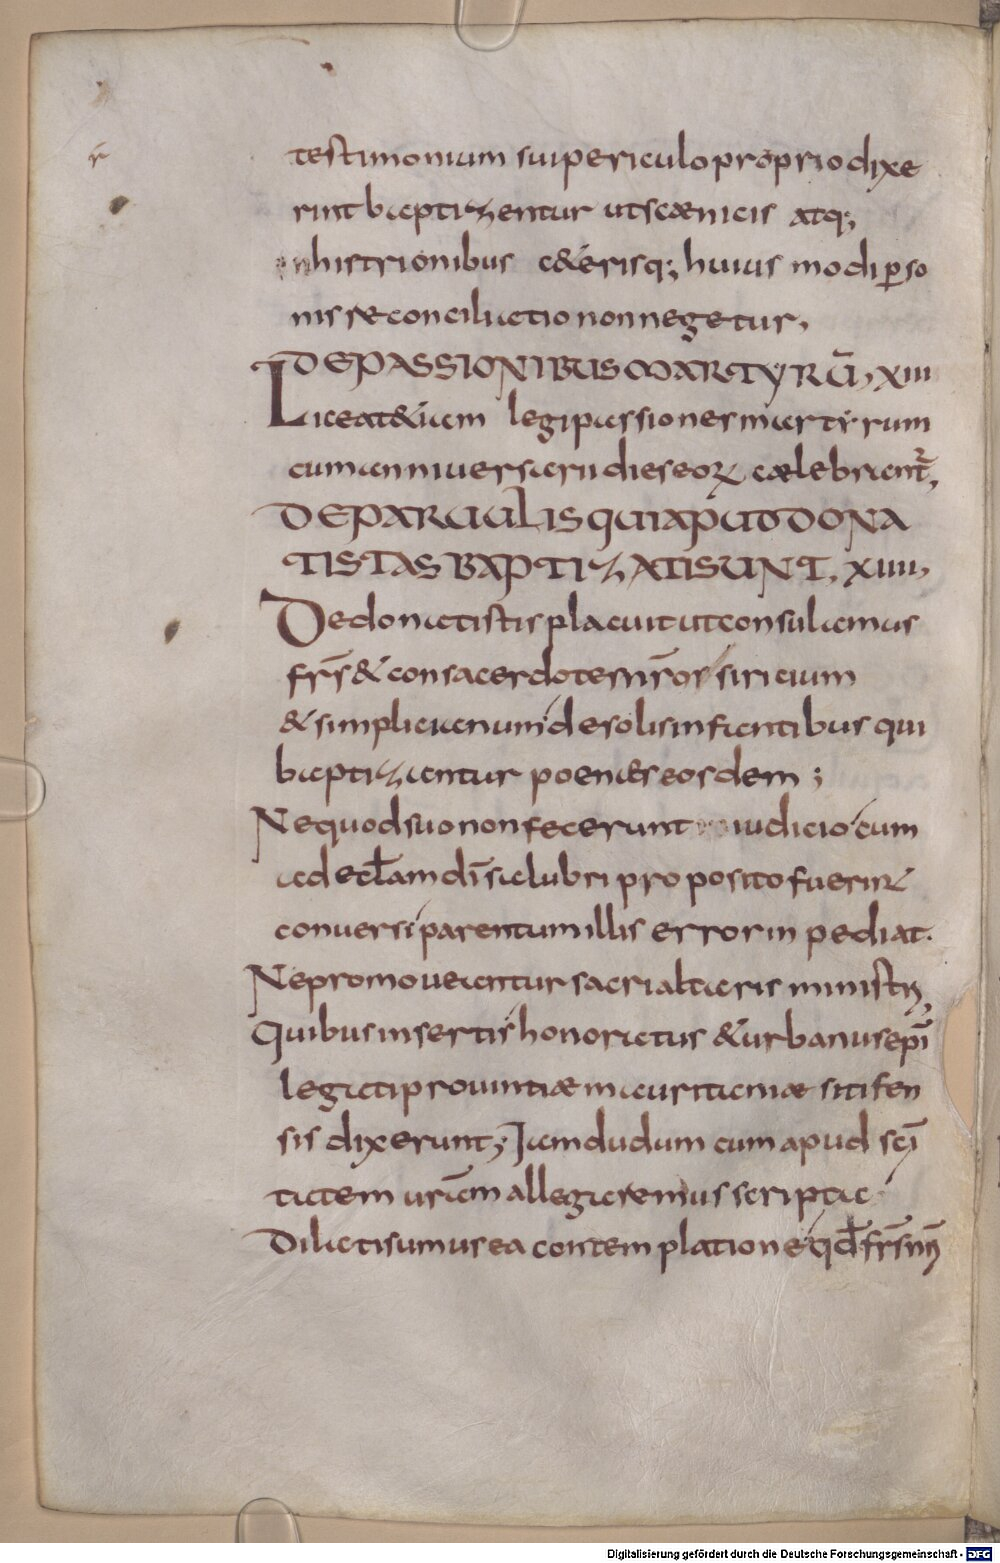 r̄
testimonium sui periculo proprio dixe
rint baptizentur ut scaenicis atq;
histrionibus c&erisq; huius modi p̲so
nis reconciliatio non negetur,
DE PASSIONIBUS MARTYRŪ, XIII
Liceat &iam legi passiones martyrum
cum anniversarii dies eoꝝ caelebrant̄,
DE PARVULIS QUI APUD DONA
TISTAS BAPTIZATI SUNT, XIIII,
De donatistis placuit ut consulamus
frs̄ & consacerdotes nr̄os siricium
& simplicianum de solis infantibus qui
baptizantur poenes eosdem;
Ne quod suo non fecerunt iudicio cum
ad eccl̄am dī salubri proposito fuerin&
conversi parentum illis error inpediat.
Ne promoveantur sacri altaris ministri,
Quibus insertis honoratus & urbanus epī
legati provintiae mauritaniae sitifen
sis dixerunt; Iam dudum cum apud sc̄i
tatem vr̄am allegaremus scripta
Dilati sumus ea contemplatione qd̄ frs̄ nr̄i
Digitalisierung gefördert durch die Deutsche Forschungsgemeinschaft - DFG